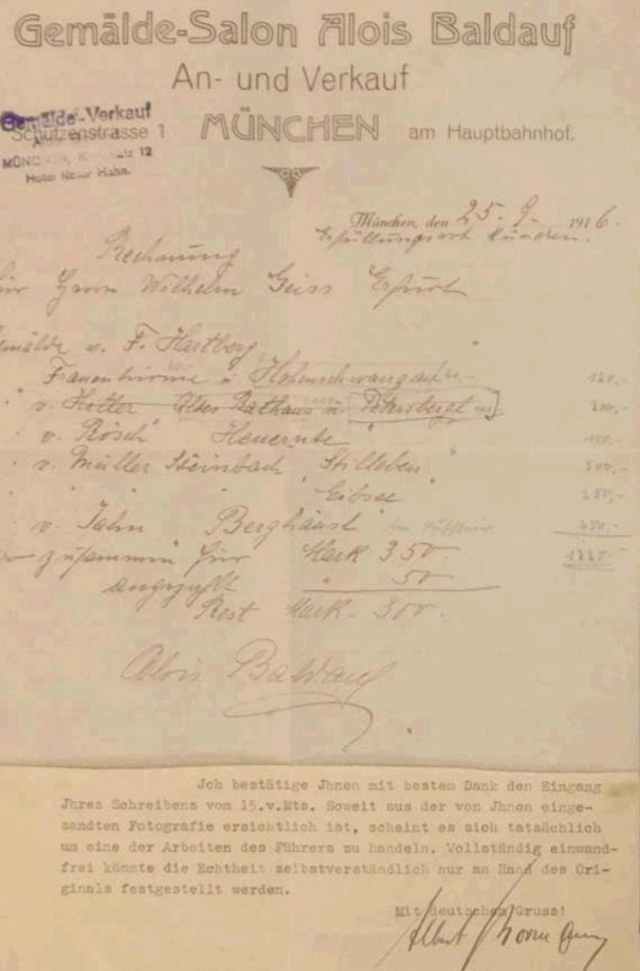 Gemälde-Salon Alois Baldauf
An- und Verkauf
Gemälde-Verkauf
Schützenstrasse 1 MÜNCHEN am Hauptbahnhof.
MÜNC 12
Hotel Roter Hahn.
München, den 25. 9. 1916.
Erfüllungsort München.
Rechnung
für Herrn Wilhelm Geiss Erfurt
Gemälde v. F. Hartberg
Frauentürme u. Hohenschwangau
" v. Hitler Altes Rathaus u. Petersbergl
" v. Rösch Heuernte
" v. Müller Steinbach "Stilleben"
" " " Eibsee
" v. Jahn Berghäusl
zusammen für Mark 350.-
angezahlt " 50.-
Rest Mark 300.
Alois Baldauf
Jch bestätige Jhnen mit bestem Dank den Eingang
Jhres Schreibens vom 15.v.Mts. Soweit aus der von Jhnen einge-
sandten Fotografie ersichtlich ist, scheint es sich tatsächlich
um eine der Arbeiten des Führers zu handeln. Vollständig einwand-
frei könnte die Echtheit selbstverständlich nur an Hand des Ori-
ginals festgestellt werden.
Mit deutschem Gruss!
Albert Bormann